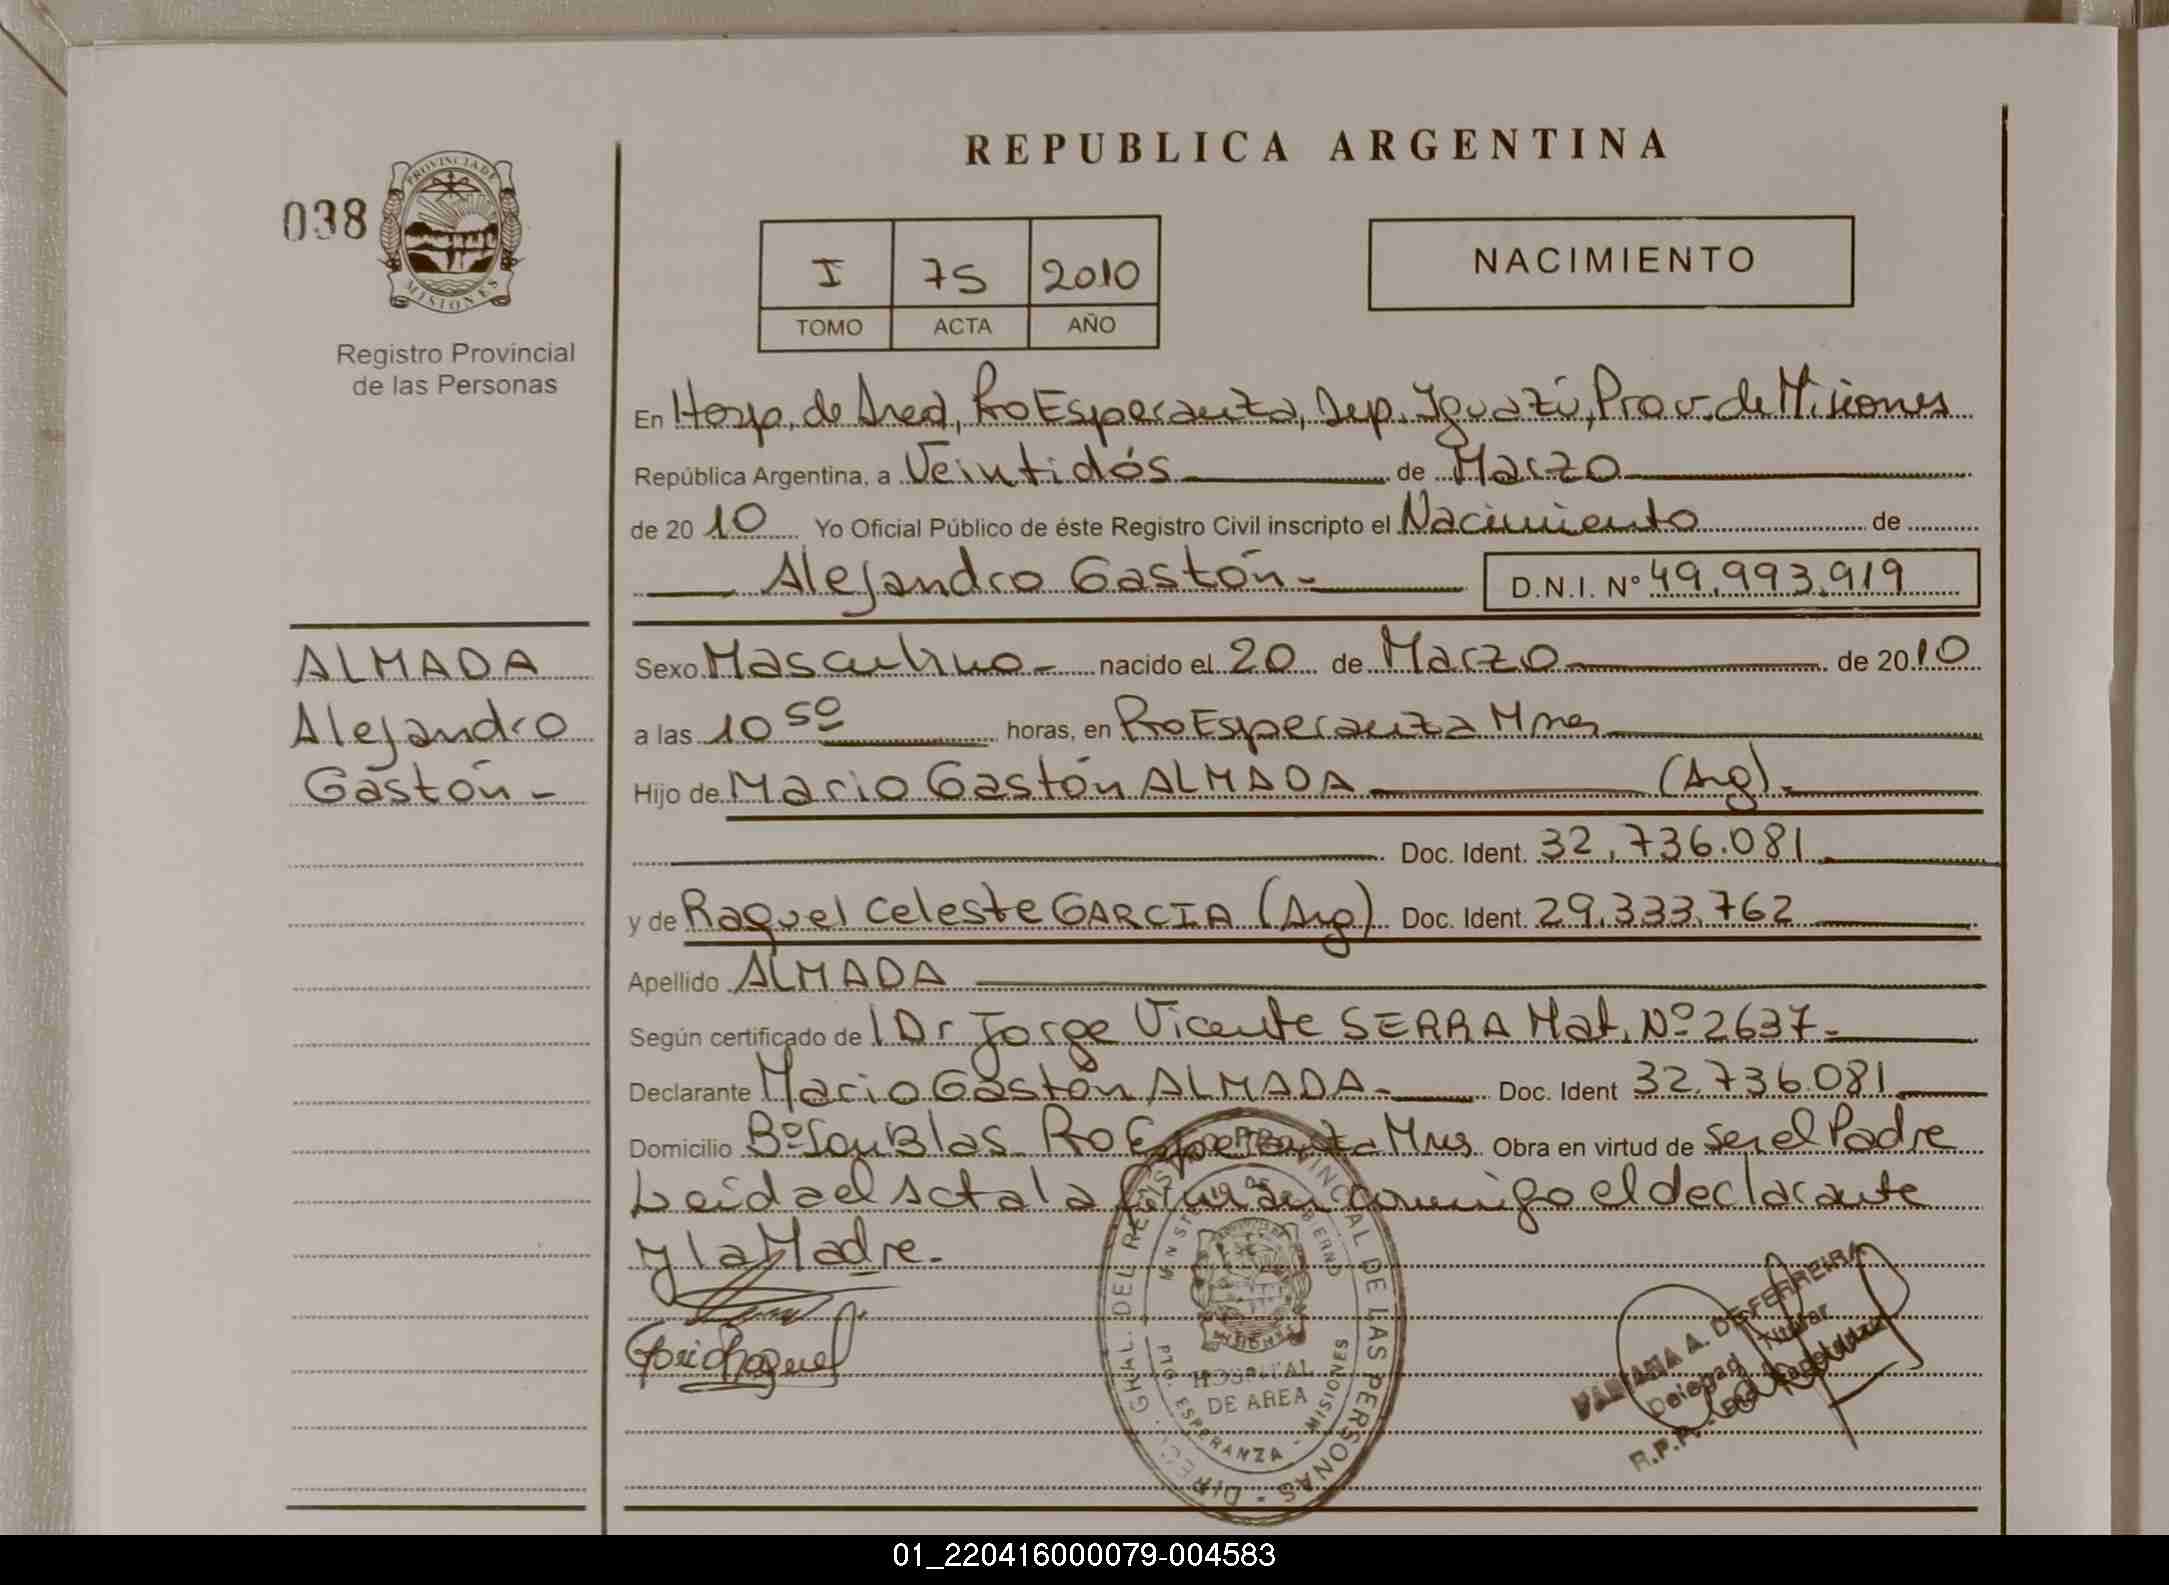 REPUBLICA ARGENTINA
038
PROVINCIA DE
MISIONES
Registro Provincial
de las Personas
I 75 2010
TOMO ACTA AÑO
NACIMIENTO
En Hosp. de Area, Pto Esperanza, Dep. Iguazú, Prov. de Misiones
República Argentina, a Veintidós de Marzo
de 2010 Yo Oficial Público de éste Registro Civil inscripto el Nacimiento de
Alejandro Gastón- D.N.I. Nº 49.993.919
ALMADA
Alejandro
Gastón-
Sexo Masculino- nacido el 20 de Marzo de 2010
a las 10 50 horas, en Pto Esperanza Mnes
Hijo de Mario Gastón ALMADA (Arg).
Doc. Ident. 32.736.081
y de Raquel Celeste GARCIA (Arg) Doc. Ident. 29.333.762
Apellido ALMADA
Según certificado de l Dr Jorge Vicente SERRA Mat. Nº 2637-
Declarante Mario Gastón ALMADA- Doc. Ident 32.736.081
Domicilio Bº San Blas Pto Esperanza Mnes Obra en virtud de ser el Padre
Leida el Acta la firman conmigo el declarante
y la Madre.
DIRECC. GRAL. DEL REGISTRO PROVINCIAL DE LAS PERSONAS -
MINISTERIO DE GOBIERNO
MISIONES
HOSPITAL
DE AREA
PTO. ESPERANZA - MISIONES
MARIANA A. DE FERREIRA
Titular
R.P.P.
01_220416000079-004583